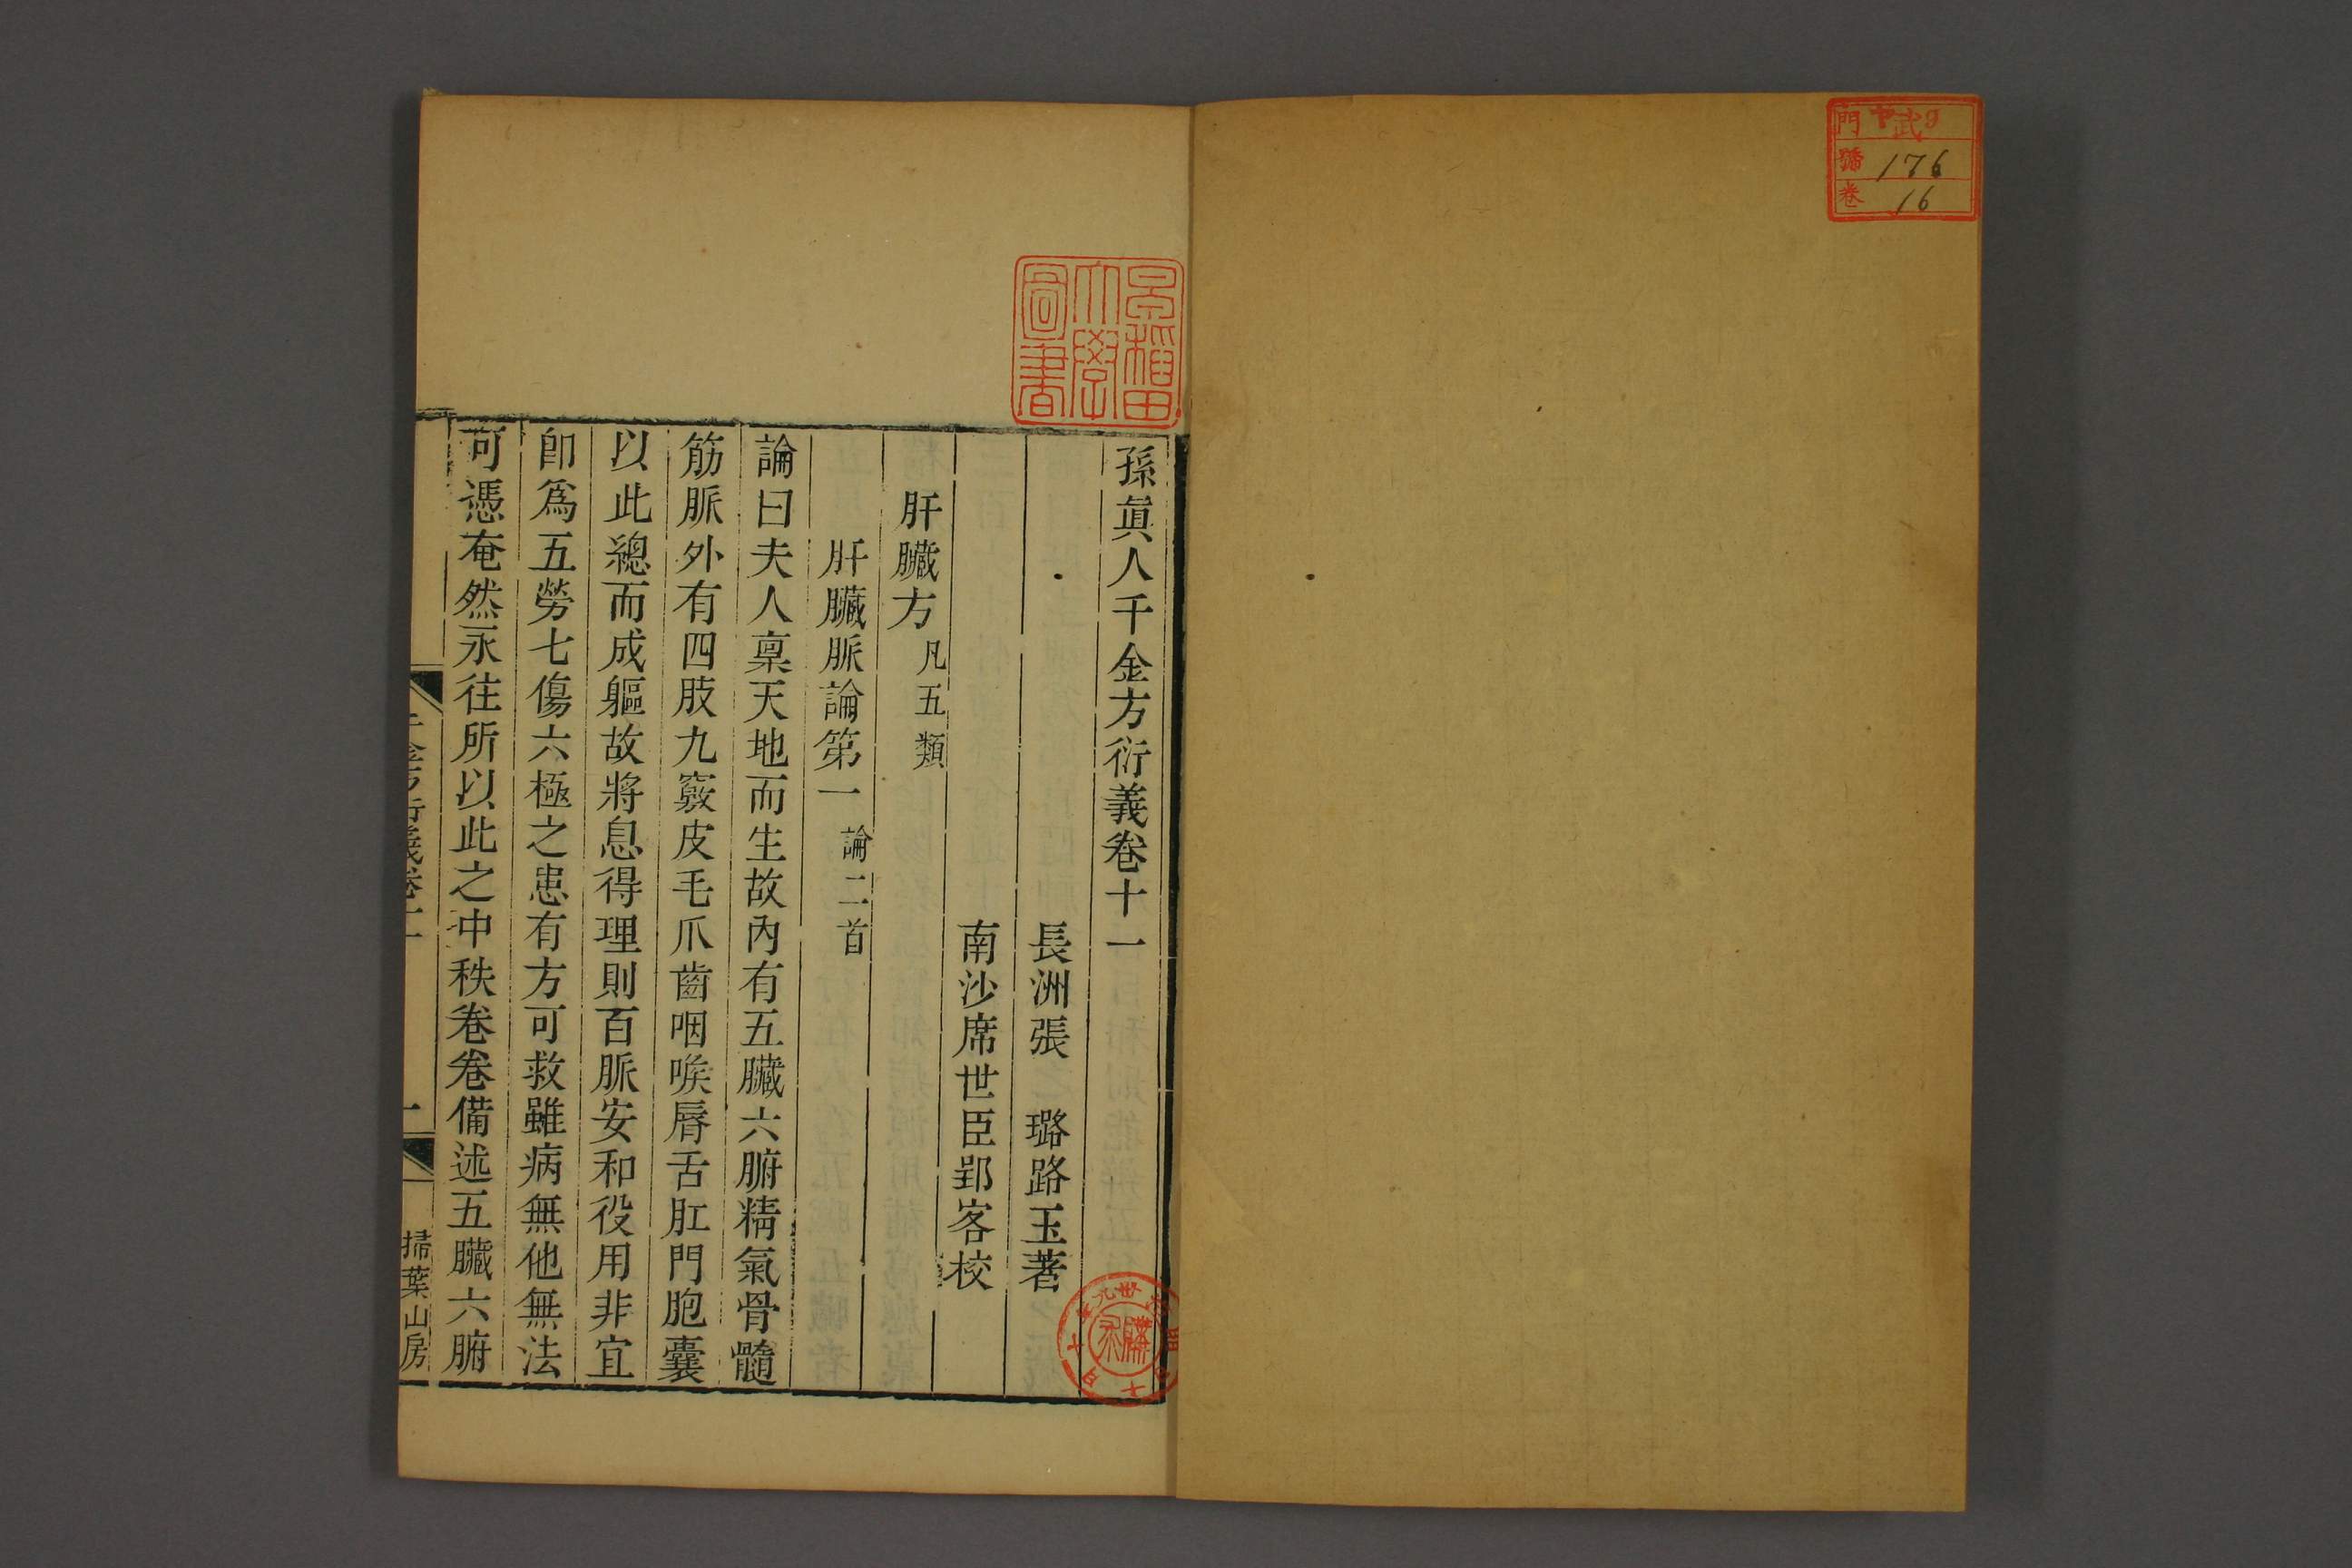 門 武9
號 176
卷 16
早稻田大學圖書
孫眞人千金方衍義卷十一
長洲張　璐路玉著
南沙席世臣郢客校
肝臟方凡五類
肝臟脈論第一論二首
論曰夫人稟天地而生故內有五臟六腑精氣骨髓
筋脈外有四肢九竅皮毛爪齒咽喉脣舌肛門胞囊
以此總而成軀故將息得理則百脈安和役用非宜
卽爲五勞七傷六極之患有方可救雖病無他無法
可憑奄然永往所以此之中秩卷卷備述五臟六腑
千金方衍義卷十一
一
掃葉山房